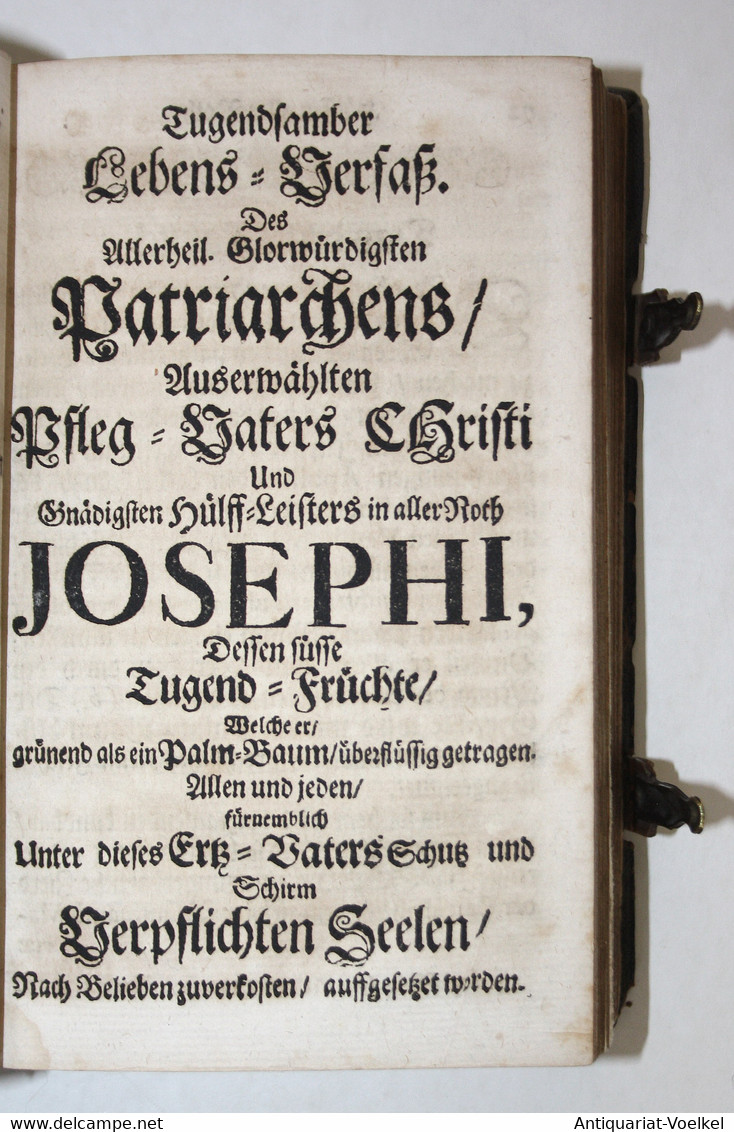 Tugendsamber
Lebens-Verfaß.
Des
Allerheil. Glorwürdigsten
Patriarchens/
Auserwählten
Pfleg-Vaters CHristi
Und
Gnädigsten Hülff-Leisters in aller Noth
JOSEPHI,
Dessen süsse
Tugend-Früchte/
Welche er/
grünend als ein Palm-Baum/überflüssig getragen.
Allen und jeden/
fürnemblich
Unter dieses Ertz-Vaters Schutz und
Schirm
Verpflichten Seelen/
Nach Belieben zuverkosten/ auffgesetzet worden.
delcampe.net
Antiquariat-Voelkel